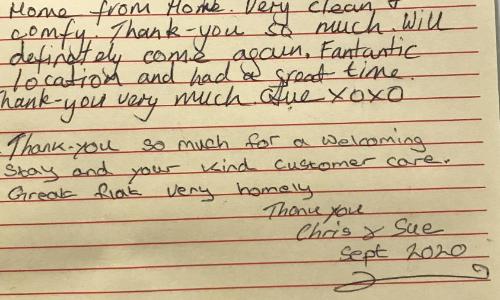 Home from Home. Very clean &
comfy. Thank-you so much. Will
definately come again. Fantantic
location and had a great time.
Thank-you very much. Sue XOXO
Thank-you so much for a welcoming
stay and your kind customer care.
Great flat very homely
Thank you
Chris & Sue
Sept 2020